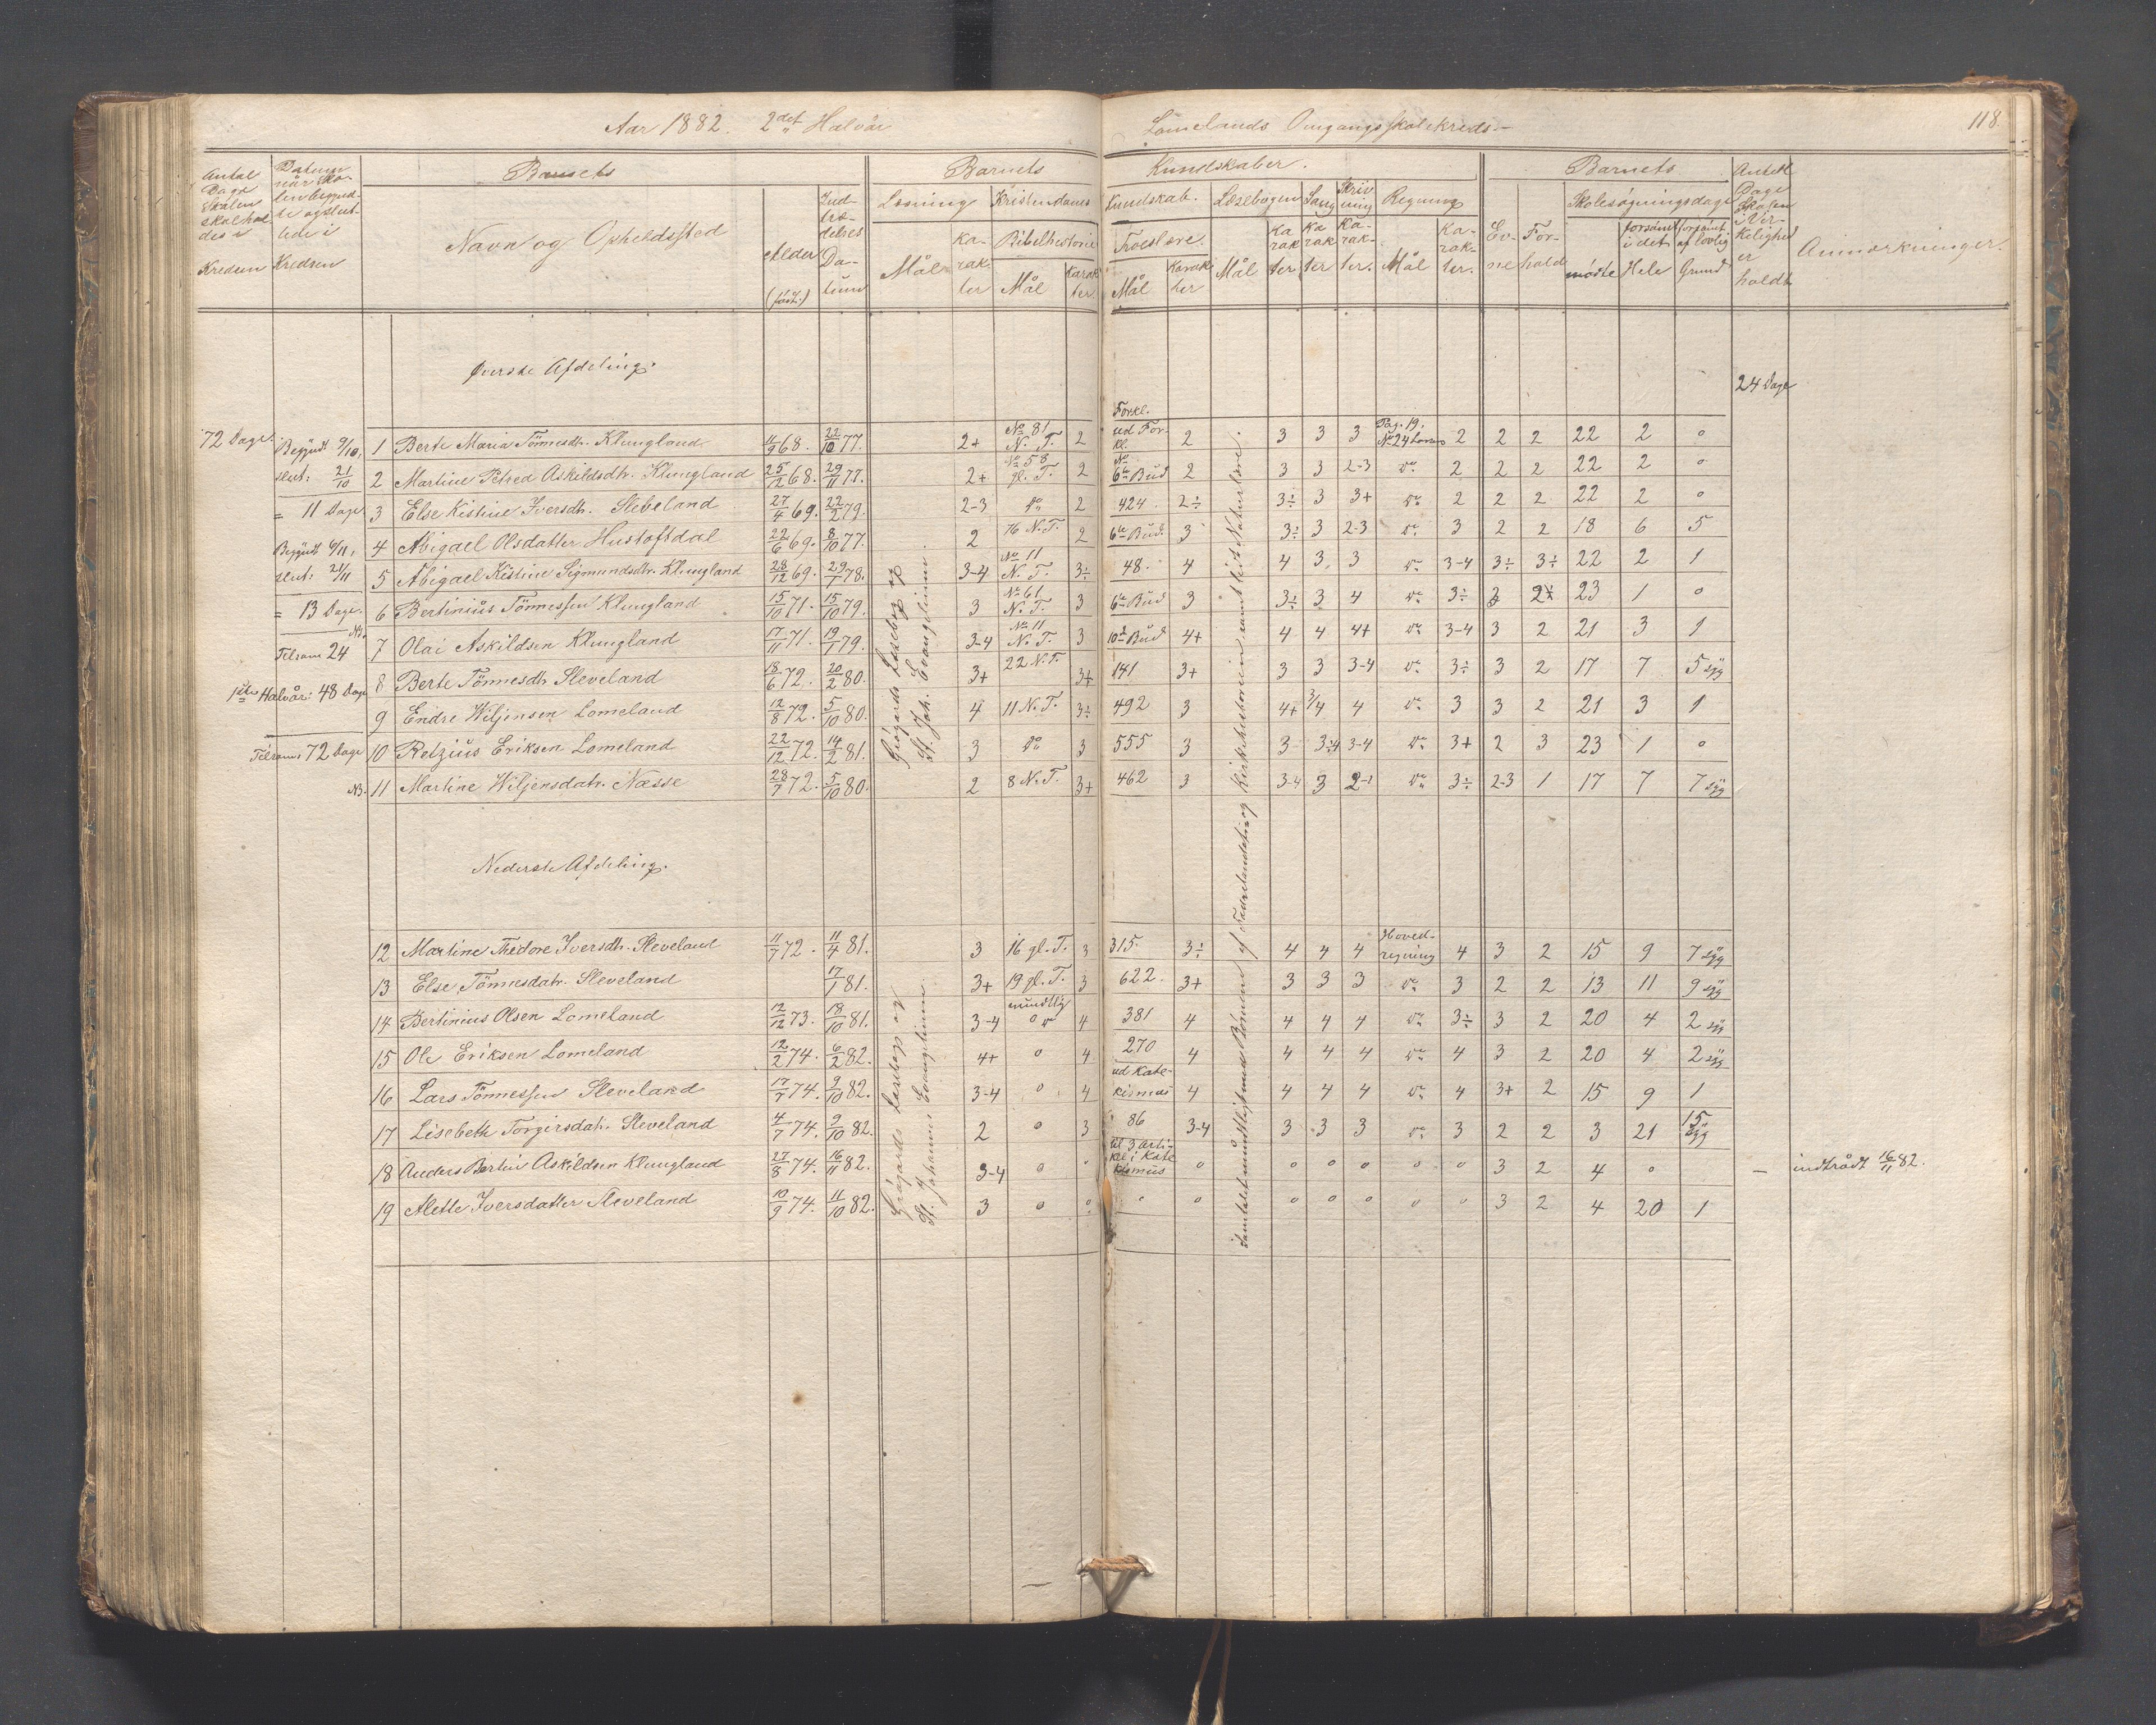 Aar 1882. 2det Halvår
Lomelands Omgangsskolekreds.
118.
Antal Dage Skolen skal holdes i Kredsen
Datum når Skolen begyndte og sluttede i Kredsen
Barnets
Navn og Opholdssted
Alder (født)
Indtrædelses Datum
Barnets Kundskaber.
Læsning
Mål
Karakter
Kristendoms Kundskab.
Bibelhistorie
Mål
Karakter
Troeslære.
Mål
Karakter
Læsebogen
Mål
Karakter
Sang
Karakter
Skrivning
Karakter.
Regning
Mål
Karakter.
Barnets
Evne
Forhold
Skolesøgningsdage
mødte
forsømt i det Hele
forsømt af lovlig Grund
Antal Dage Skolen i Virkelighed er holdt
Anmærkninger.
Øverste Afdeling.
24 Dage
72 Dage.
Begyndt 9/10,
slut: 21/10
= 11 Dage
Begyndt 6/11,
slut: 21/11
= 13 Dage.
NB.
Tilsam 24
1ste Halvår: 48 Dage
Tilsam: 72 Dage
NB.
Grøgårds Læsebog og St. Joh. Evangelium.
Samtlet mundtlig med Børnene af Fædrelandets og Kirkehistorien samt lidt Naturlære.
1 Berte Maria Tönnesdt. Klungland 4/9 68. 22/10 77. 2+ No 81 N. T. 2 Forkl. ud Forkl. 2 3 3 3 Pag. 19. No 24 2 2 2 22 2 0
2 Martine Petred Askildsdt. Klungland 25/12 68. 29/11 77. 2+ No 58 gl. T. 2 No 6te Bud 2 3 3 2-3 do 2 2 2 22 2 0
3 Else Kistine Iversdt. Slebeland 27/4 69. 22/2 79. 2-3 do 2 424 2÷ 3÷ 3 3+ do 2 2 2 22 2 0
4 Abigael Olsdatter Hustoftdal 22/6 69. 8/10 77. 2 76 N. T. 2 6te Bud. 3 3÷ 3 2-3 do 3 2 2 18 6 5
5 Abigael Kistine Sigmundsdtr. Klungland 28/12 69. 29/1 78. 3-4 No 11 N. T. 3÷ 48. 4 4 3 3 do 3-4 3÷ 3÷ 22 2 1
6 Bertinius Tönnessen Klungland 15/10 71. 15/10 79. 3 No 61 N. T. 3 6te Bud 3 3÷ 3 4 do 3÷ 3 2 23 1 0
7 Olai Askildsen Klungland 17/11 71. 19/1 79. 3-4 No 11 N. T. 3 10de Bud 4+ 4 4 4+ do 3-4 3 2 21 3 1
8 Berte Tönnesdt. Sleveland 18/6 72. 20/2 80. 3+ 22 N. T. 3+ 141 3+ 3 3 3-4 do 3÷ 3 2 17 7 5 syg
9 Endre Wiljensen Lomeland 12/8 72. 5/10 80. 4 11 N. T. 3÷ 492 3 4+ 3/4 4 do 3 3 2 21 3 1
10 Retzius Eriksen Lomeland 22/12 72. 14/2 81. 3 do 3 555 3 3 3÷4 3-4 do 3+ 2 3 23 1 0
11 Martine Wiljensdatr. Næsse 28/7 72. 5/10 80. 2 8 N. T. 3+ 462 3 3-4 3 2-1 do 3÷ 2-3 1 17 7 7 syg
Nederste Afdeling.
Grøgårds Læsebog og St. Johannes Evangelium.
12 Martine Thedore Iversdt. Sleveland 11/7 72. 11/4 81. 3 16 gl. T. 3 315. 3÷ 4 4 4 Hovedregning 4 3 2 15 9 7 syg
13 Else Tönnesdatr. Sleveland 17/1 81. 3+ 19 gl. T. 3 622. 3+ 3 3 3 do 3 2 2 13 11 9 syg
14 Bertinius Olsen Lomeland 12/12 73. 18/10 81. 3-4 mundtlig 4 381 4 4 4 4 do 3÷ 3 2 20 4 2 syg
15 Ole Eriksen Lomeland 12/2 74. 6/2 82. 4+ 0 4 270 4 4 4 4 do 4 3 2 20 4 2 syg
16 Lars Tönnessen Sleveland 17/7 74. 9/10 82. 3-4 0 4 ud Katekismus 4 4 4 4 do 4 3+ 2 15 9 1
17 Lisebeth Torgersdatr. Sleveland 4/7 74. 9/10 82. 2 0 3 86 3-4 3 3 3 do 3 2 2 3 21 15 syg
18 Anders Bertin Askildsen Klungland 27/8 74. 16/11 82. 3-4 0 0 til 3 Artikel i Katekismus 0 0 0 0 0 0 3 2 4 0 — indtrådt 16/11 82.
19 Alette Iversdatter Sleveland 10/9 74. 11/10 82. 3 0 0 0 0 0 0 0 0 0 3 2 4 20 1